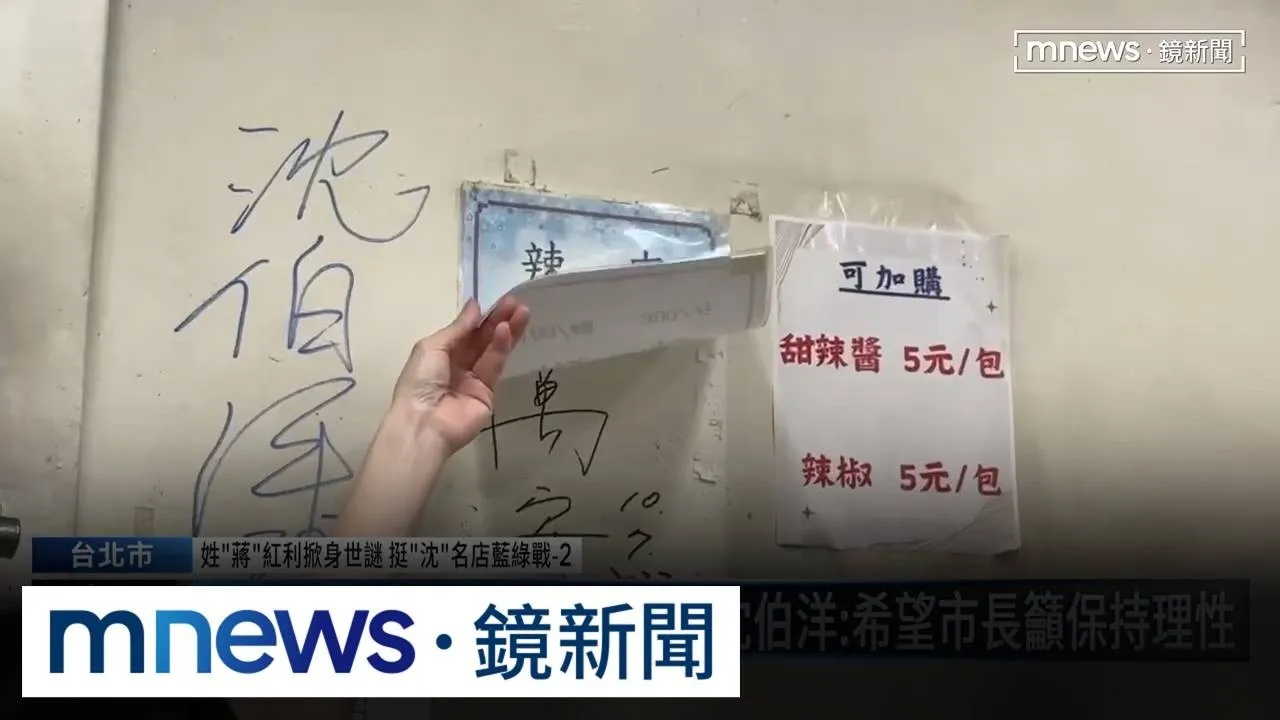 mnews·鏡新聞
沈
伯
洋
辣
萬
安
10.
7.
可加購
甜辣醬 5元/包
辣椒 5元/包
台北市
姓"蔣"紅利掀身世謎 挺"沈"名店藍綠戰-2
伯洋:希望市長籲保持理性
mnews·鏡新聞